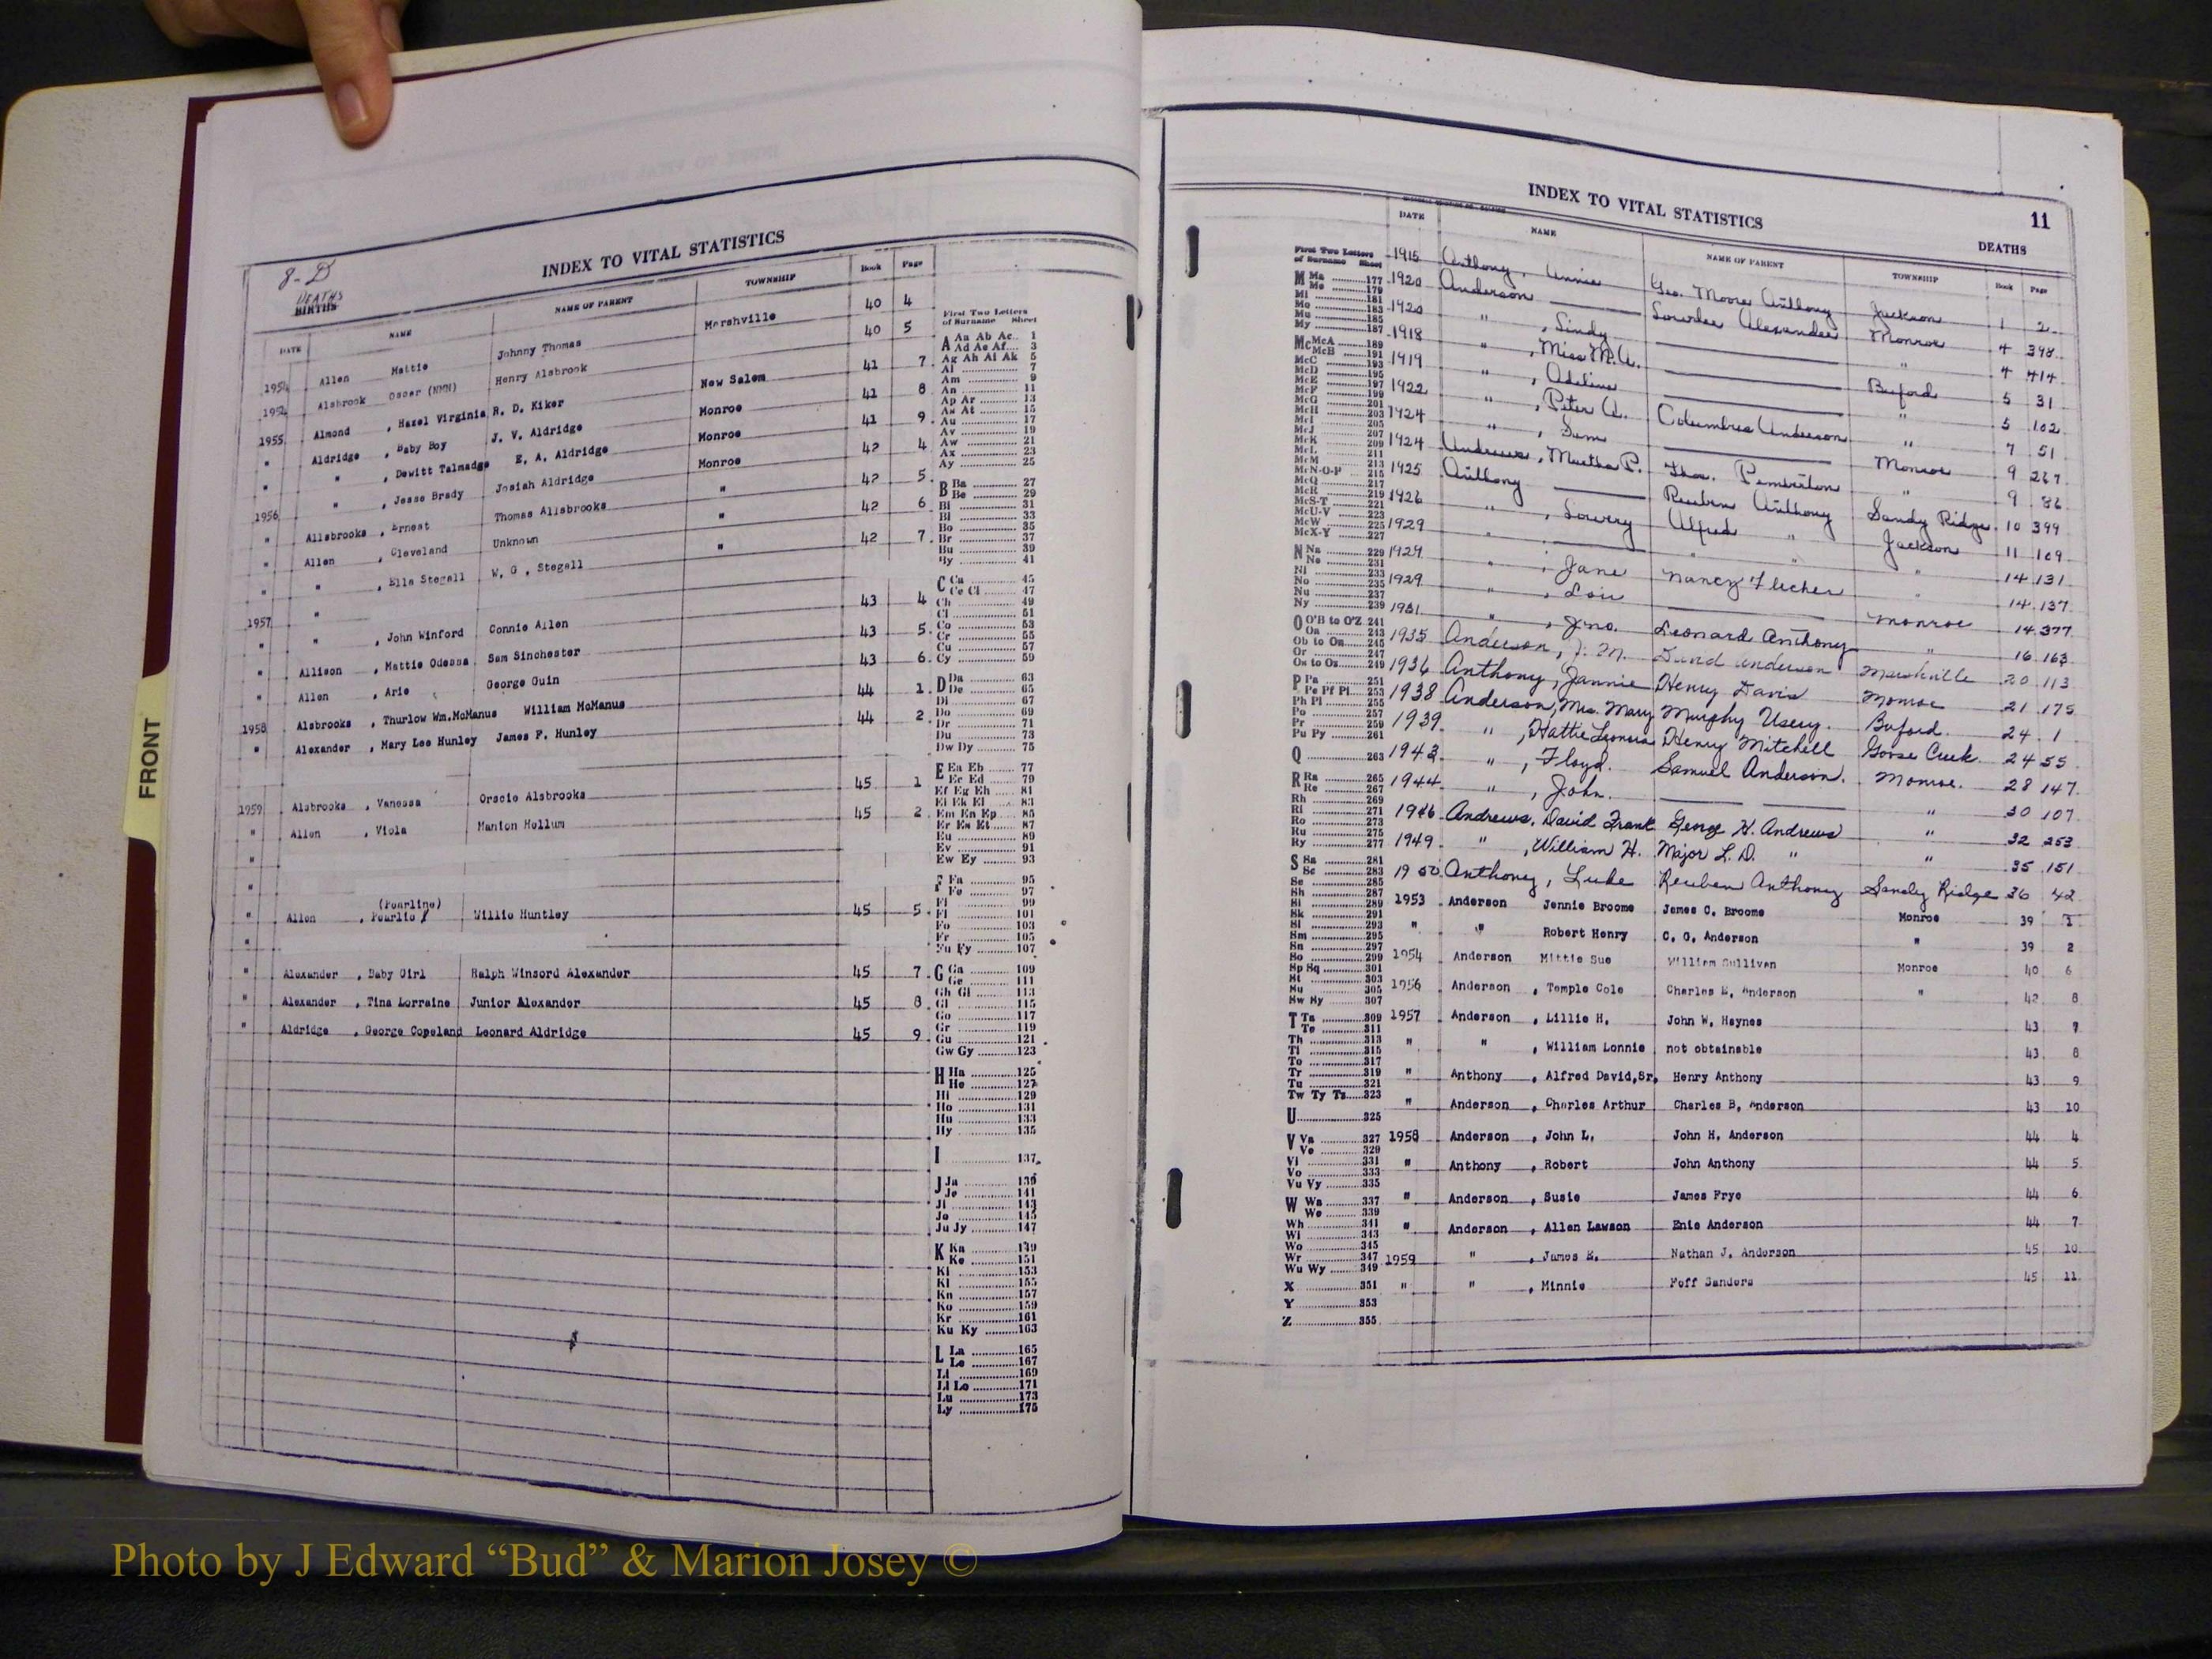 FRONT
8-D
DEATHS
BIRTHS
INDEX TO VITAL STATISTICS
DATE NAME NAME OF PARENT TOWNSHIP Book Page
1954 Allen Mattie Johnny Thomas Marshville 40 4
1954 Alsbrook Oscar (NMN) Henry Alsbrook 40 5
1955 Almond , Hazel Virginia R. D. Kiker New Salem 41 7
" Aldridge , Baby Boy J. V. Aldridge Monroe 41 8
" " , Dewitt Talmadge E. A. Aldridge Monroe 41 9
1956 " , Jesse Brady Josiah Aldridge Monroe 42 4
" Allsbrooks , Ernest Thomas Allsbrooks " 42 5
" Allen , Cleveland Unknown " 42 6
" " , Ella Stegall W. G. Stegall " 42 7
1957 "
" " , John Winford Connie Allen 43 4
" Allison , Mattie Odessa Sam Sinchester 43 5
" Allen , Arie George Guin 43 6
1958 Alsbrooks , Thurlow Wm.McManus William McManus 44 1
" Alexander , Mary Lee Hunley James P. Hunley 44 2
1959 Alsbrooks , Vanessa Orscie Alsbrooks 45 1
" Allen , Viola Manion Hellum 45 2
"
"
(Pearline)
" Allen , Pearlie Willie Huntley 45 5
"
" Alexander , Baby Girl Ralph Winsord Alexander 45 7
" Alexander , Tina Lorraine Junior Alexander 45 8
" Aldridge , George Copeland Leonard Aldridge 45 9
First Two Letters
of Surname Sheet
A Aa Ab Ac 1
Ad Ae Af 3
Ag Ah Ai Ak 5
Al 7
Am 9
An 11
Ap Ar 13
As At 15
Au 17
Av 19
Aw 21
Ax 23
Ay 25
B Ba 27
Be 29
Bi 31
Bl 33
Bo 35
Br 37
Bu 39
By 41
C Ca 45
Ce Ci 47
Ch 49
Cl 51
Co 53
Cr 55
Cu 57
Cy 59
D Da 63
De 65
Di 67
Do 69
Dr 71
Du 73
Dw Dy 75
E Ea Eb 77
Ec Ed 79
Ef Eg Eh 81
Ei Ek El 83
Em En Ep 85
Er Es Et 87
Eu 89
Ev 91
Ew Ey 93
F Fa 95
Fe 97
Fi 99
Fl 101
Fo 103
Fr 105
Fu Fy 107
G Ga 109
Ge 111
Gh Gi 113
Gl 115
Go 117
Gr 119
Gu 121
Gw Gy 123
H Ha 125
He 127
Hi 129
Ho 131
Hu 133
Hy 135
I 137
J Ja 139
Je 141
Ji 143
Jo 145
Ju Jy 147
K Ka 149
Ke 151
Ki 153
Kl 155
Kn 157
Ko 159
Kr 161
Ku Ky 163
L La 165
Le 167
Li 169
Ll Lo 171
Lu 173
Ly 175
INDEX TO VITAL STATISTICS 11
DEATHS
DATE NAME NAME OF PARENT TOWNSHIP Book Page
1915 Anthony, Annie Geo. Moore Anthony Jackson 1 2
1920 Anderson Lowrder Alexander Monroe 4 398
1920 " , Lindy " 4 414
1918 " , Miss M.A. Buford 5 31
1919 " , Adeline " 5 102
1922 " , Peter A. Columbus Anderson " 7 51
1924 " , Sam Monroe 9 267
1924 Andrews, Martha P. Thos. Pemberton " 9 86
1925 Anthony Reuben Anthony Sandy Ridge 10 399
1926 " , Lowery Alfred " Jackson 11 109
1929 " " " 14 131
1929 " , Jane Nancy Flecher " 14 137
1929 " , Lois Monroe 14 377
1931 " , Jno. Leonard Anthony " 16 163
1935 Anderson, J. M. Anderson Marshville 20 113
1936 Anthony, Jannie Henry Davis Monroe 21 175
1938 Anderson, Mrs. Mary Murphy Usery. Buford. 24 1
1939. " , Hattie Leonora Henry Mitchell Goose Creek. 24 55
1943. " , Floyd. Samuel Anderson. Monroe. 28 147
1944 " , John. " 30 107
1946 Andrews, David Frank George H. Andrews " 32 253
1949 " , William H. Major L. D. " " 35 151
1950 Anthony, Luke Reuben Anthony Sandy Ridge 36 42
1953 Anderson Jennie Broome James C. Broome Monroe 39 1
" " Robert Henry C. G. Anderson " 39 2
1954 Anderson Mittie Sue William Sullivan Monroe 40 6
1956 Anderson , Temple Cole Charles E. Anderson " 42 8
1957 Anderson , Lillie H. John W. Haynes 43 7
" " , William Lonnie not obtainable 43 8
" Anthony , Alfred David,Sr. Henry Anthony 43 9
" Anderson , Charles Arthur Charles B. Anderson 43 10
1958 Anderson , John L. John H. Anderson 44 4
" Anthony , Robert John Anthony 44 5
" Anderson , Susie James Frye 44 6
" Anderson , Allen Lawson Enie Anderson 44 7
1959 " , James E. Nathan J. Anderson 45 10
" " , Minnie Poff Sanders 45 11
First Two Letters
of Surname Sheet
M Ma 177
Me 179
Mi 181
Mo 183
Mu 185
My 187
Mc McA 189
McB 191
McC 193
McD 195
McE 197
McF 199
McG 201
McH 203
McI 205
McJ 207
McK 209
McL 211
McM 213
McN-O-P 215
McQ 217
McR 219
McS-T 221
McU-V 223
McW 225
McX-Y 227
N Na 229
Ne 231
Ni 233
No 235
Nu 237
Ny 239
O O'B to O'Z 241
Oa 243
Ob to On 245
Or 247
Os to Oz 249
P Pa 251
Pe Pf Pi 253
Ph Pl 255
Po 257
Pr 259
Pu Py 261
Q 263
R Ra 265
Re 267
Rh 269
Ri 271
Ro 273
Ru 275
Ry 277
S Sa 281
Sc 283
Se 285
Sh 287
Si 289
Sk 291
Sl 293
Sm 295
Sn 297
So 299
Sp Sq 301
St 303
Su 305
Sw Sy 307
T Ta 309
Te 311
Th 313
Ti 315
To 317
Tr 319
Tu 321
Tw Ty Tz 323
U 325
V Va 327
Ve 329
Vi 331
Vo 333
Vu Vy 335
W Wa 337
We 339
Wh 341
Wi 343
Wo 345
Wr 347
Wu Wy 349
X 351
Y 353
Z 355
Photo by J Edward “Bud” & Marion Josey ©